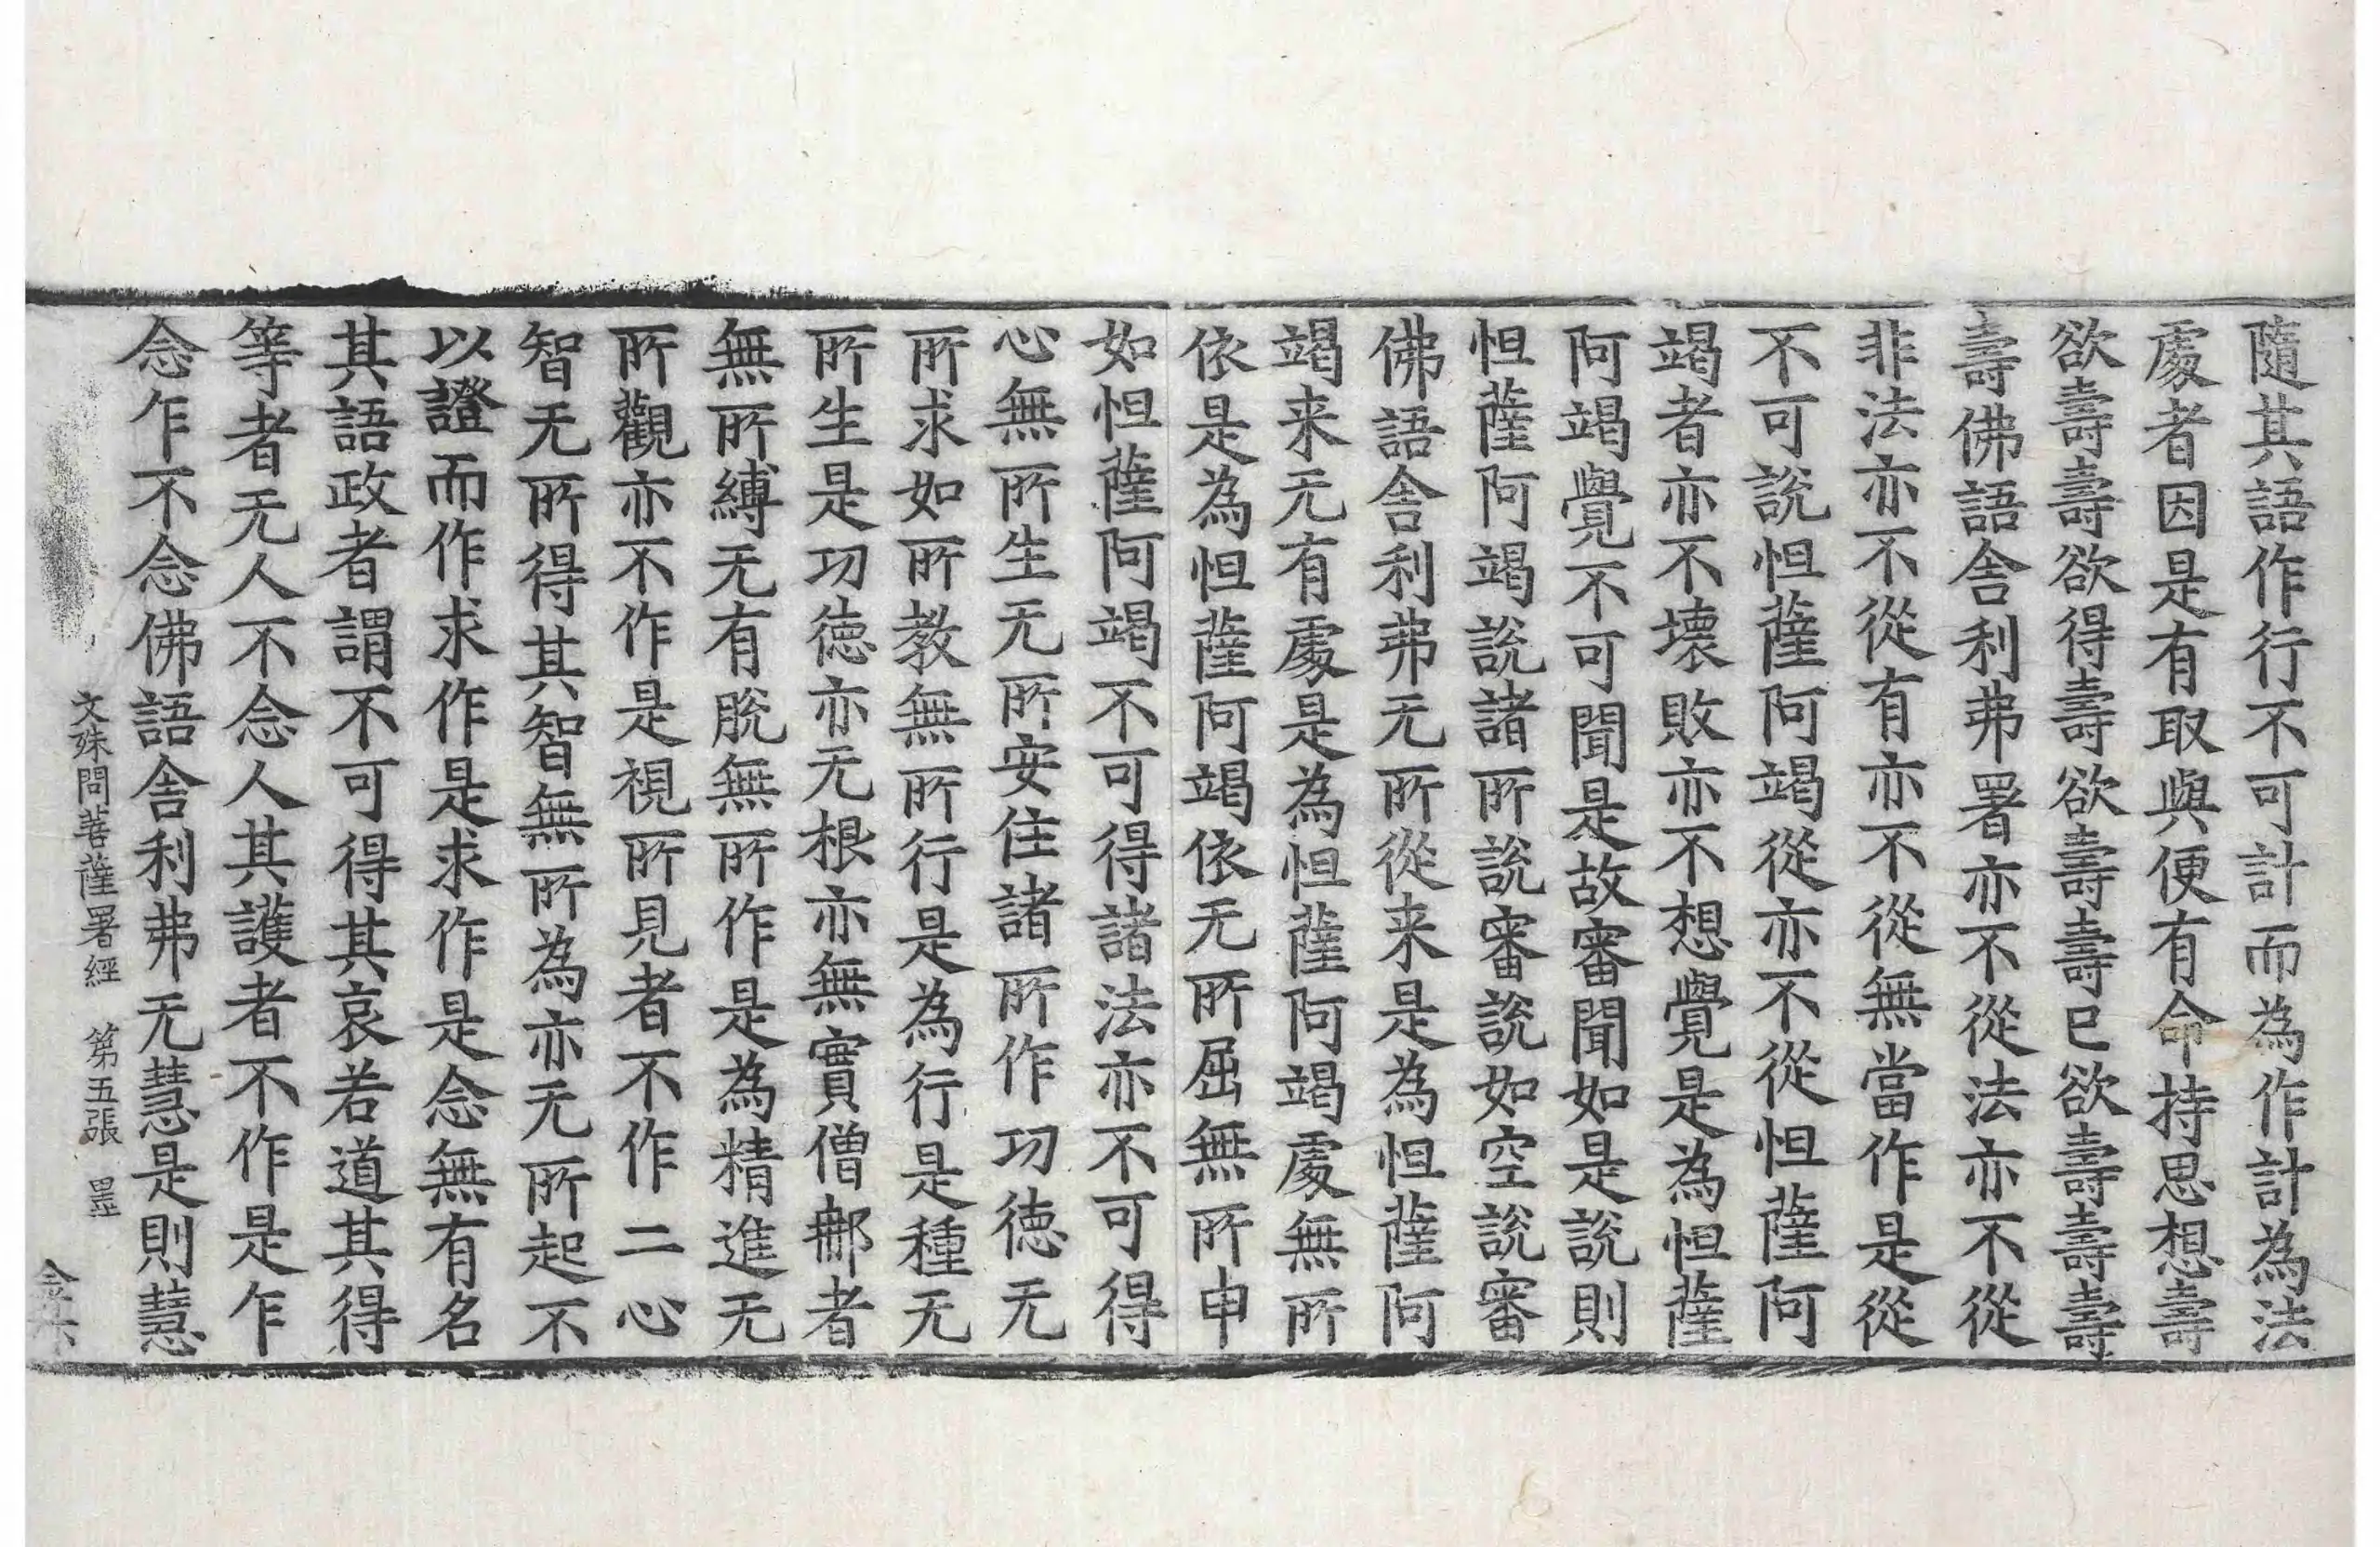 隨其語作行不可計而為作計為法
處者因是有取與便有命持思想壽
欲壽壽欲得壽欲壽壽已欲壽壽壽
壽佛語舍利弗署亦不從法亦不從
非法亦不從有亦不從無當作是從
不可說怛薩阿竭從亦不從怛薩阿
竭者亦不壞敗亦不想覺是為怛薩
阿竭覺不可聞是故審聞如是說則
怛薩阿竭說諸所說審說如空說審
佛語舍利弗无所從来是為怛薩阿
竭来无有處是為怛薩阿竭處無所
依是為怛薩阿竭依无所屈無所申
如怛薩阿竭不可得諸法亦不可得
心無所生无所安住諸所作功德无
所求如所教無所行是為行是種无
所生是功德亦无根亦無實僧那者
無所縛无有脫無所作是為精進无
所觀亦不作是視所見者不作二心
智无所得其智無所為亦无所起不
以證而作求作是求作是念無有名
其語政者謂不可得其哀若道其得
等者无人不念人其護者不作是乍
念乍不念佛語舍利弗无慧是則慧
文殊問菩薩署經 第五張 罡